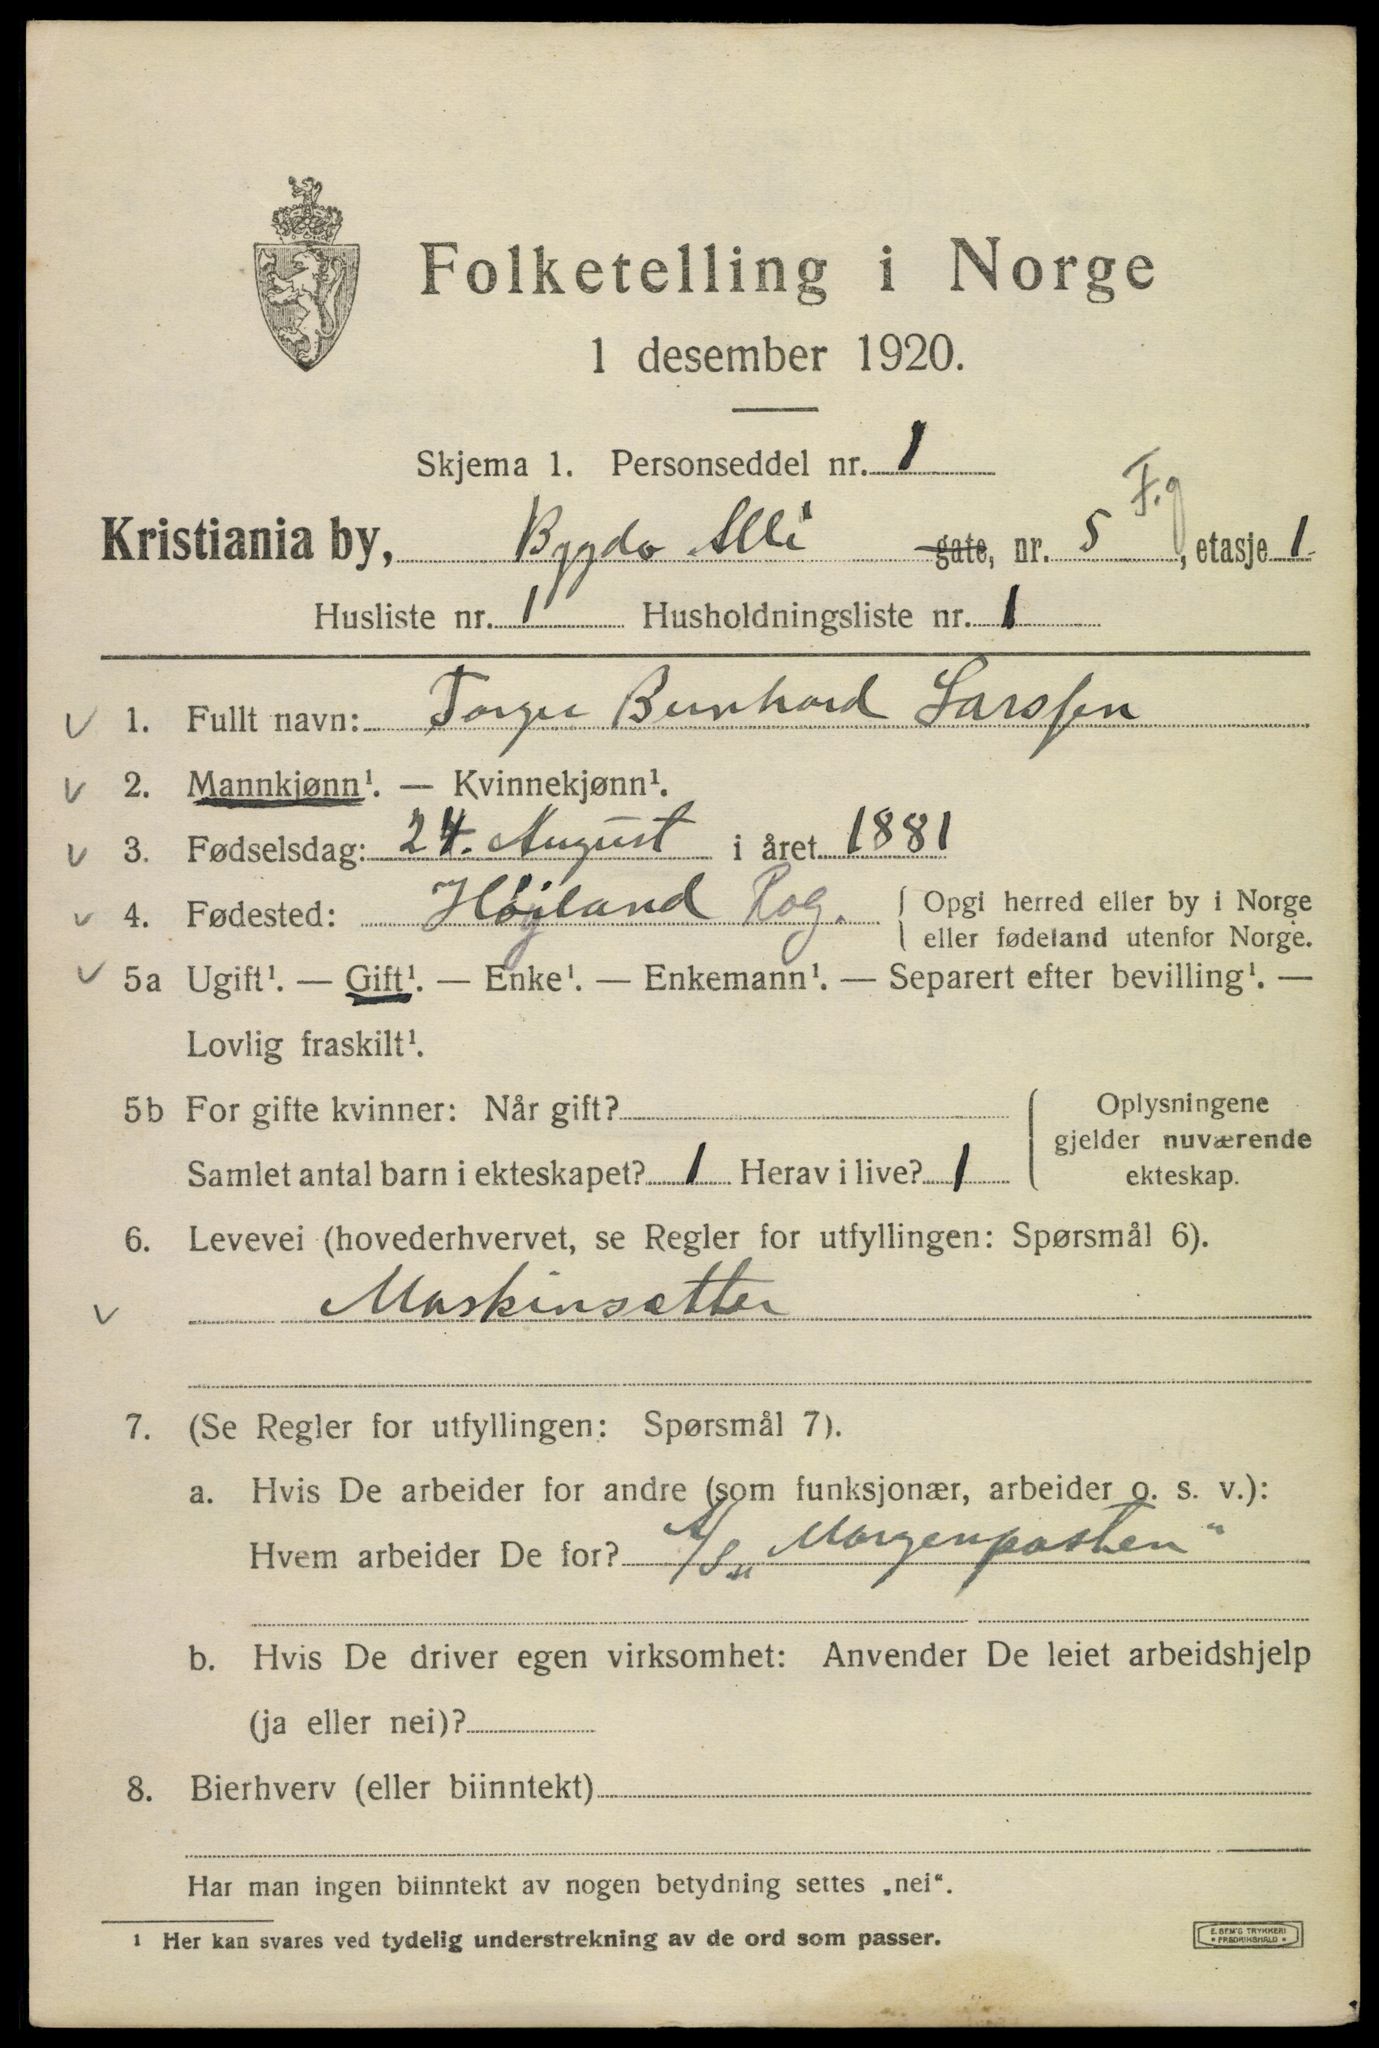 Folketelling i Norge
1 desember 1920.
Skjema 1. Personseddel nr. 1
Kristiania by, Bygdø Allé gate, nr. 5 F.g, etasje 1
Husliste nr. 1 Husholdningsliste nr. 1
1. Fullt navn: Torger Bernhard Larssen
2. Mannkjønn¹. — Kvinnekjønn¹.
3. Fødselsdag: 24. August i året 1881
4. Fødested: Højland Rog. Opgi herred eller by i Norge
eller fødeland utenfor Norge.
5a Ugift¹. — Gift¹. — Enke¹. — Enkemann¹. — Separert efter bevilling¹. —
Lovlig fraskilt¹.
5b For gifte kvinner: Når gift?
Samlet antal barn i ekteskapet? 1 Herav i live? 1
Oplysningene
gjelder nuværende
ekteskap.
6. Levevei (hovederhvervet, se Regler for utfyllingen: Spørsmål 6).
Maskinsætter
7. (Se Regler for utfyllingen: Spørsmål 7).
a. Hvis De arbeider for andre (som funksjonær, arbeider o. s. v.):
Hvem arbeider De for? A/S „Morgenposten"
b. Hvis De driver egen virksomhet: Anvender De leiet arbeidshjelp
(ja eller nei)?
8. Bierhverv (eller biinntekt)
Har man ingen biinntekt av nogen betydning settes „nei“.
¹ Her kan svares ved tydelig understrekning av de ord som passer.
E. SEM'S TRYKKERI
* FREDRIKSHALD *